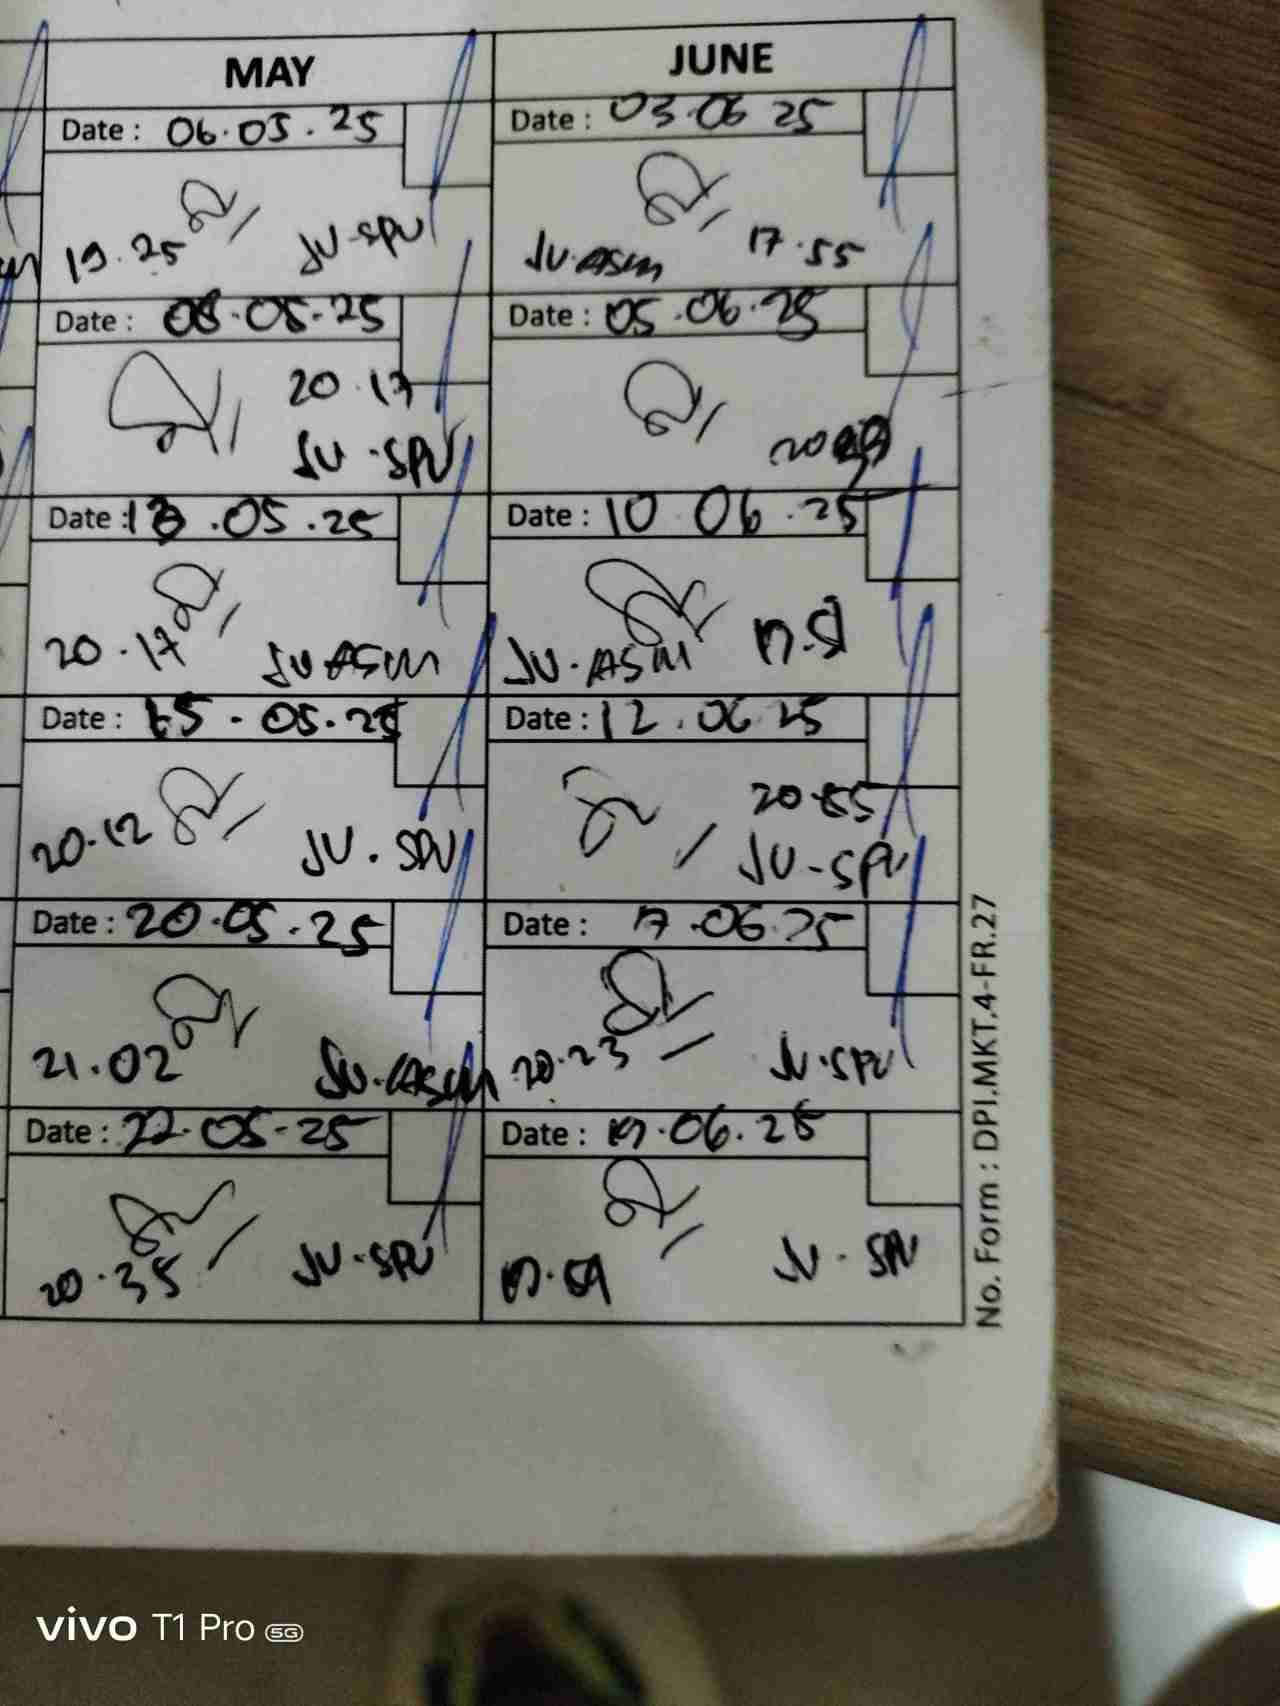 MAY
Date : 06.05.25
19.25 JV-SPV
Date : 08.05.25
20.17
JV-SPV
Date : 13.05.25
20.17 JV ASM
Date : 15-05.25
20.12 JV.SPV
Date : 20.05.25
21.02 JV.ASM
Date : 22.05-25
20.35 JV-SPV
JUNE
Date : 03.06 25
JV.ASM 17.55
Date : 05.06.25
Date : 10 06.25
JV.ASM
Date : 12.06 25
20.55
JV-SPV
Date : 17.06.25
20.23 JV.SPV
Date : 19.06.25
JV. SPV
No. Form : DPI.MKT.4-FR.27
vivo T1 Pro 5G